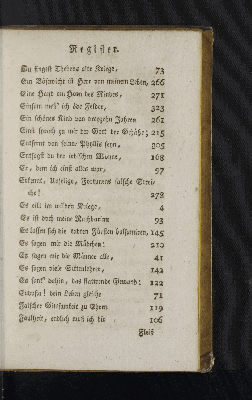 Register.
Du singst Thebens alte Kriege, 73
Ein Bösewicht ist Herr von meinem Leben, 266
Eine Hand ein Horn des Weines, 271
Einsam irrt' ich öde Felder, 323
Ein schönes Kind von vierzehn Jahren 261
Einst sprach zu mir der Gott der Schätze; 215
Entfernt von seiner Phyllis seyn, 305
Entsagst du der irdischen Wonne, 108
Er, dem ich einst alles war, 97
Erkennt, Unselige, Fortunens falsche Strei-
che! 278
Es eilt im wilden Kriege, 4
Es ist doch meine Nachbarinn 93
Es lassen sich die todten Fürsten balsamiren, 145
Es sagen mir die Mädchen: 210
Es sagen mir die Männer alle, 41
Es sagen viele Sittenlehrer, 142
Es sank dahin, das flatternde Gewand! 122
Euphosa! dein Leben gleiche 71
Falscher Gleisnerheit zu Ehren 119
Faulheit, endlich muß ich dir 106
Fleiß